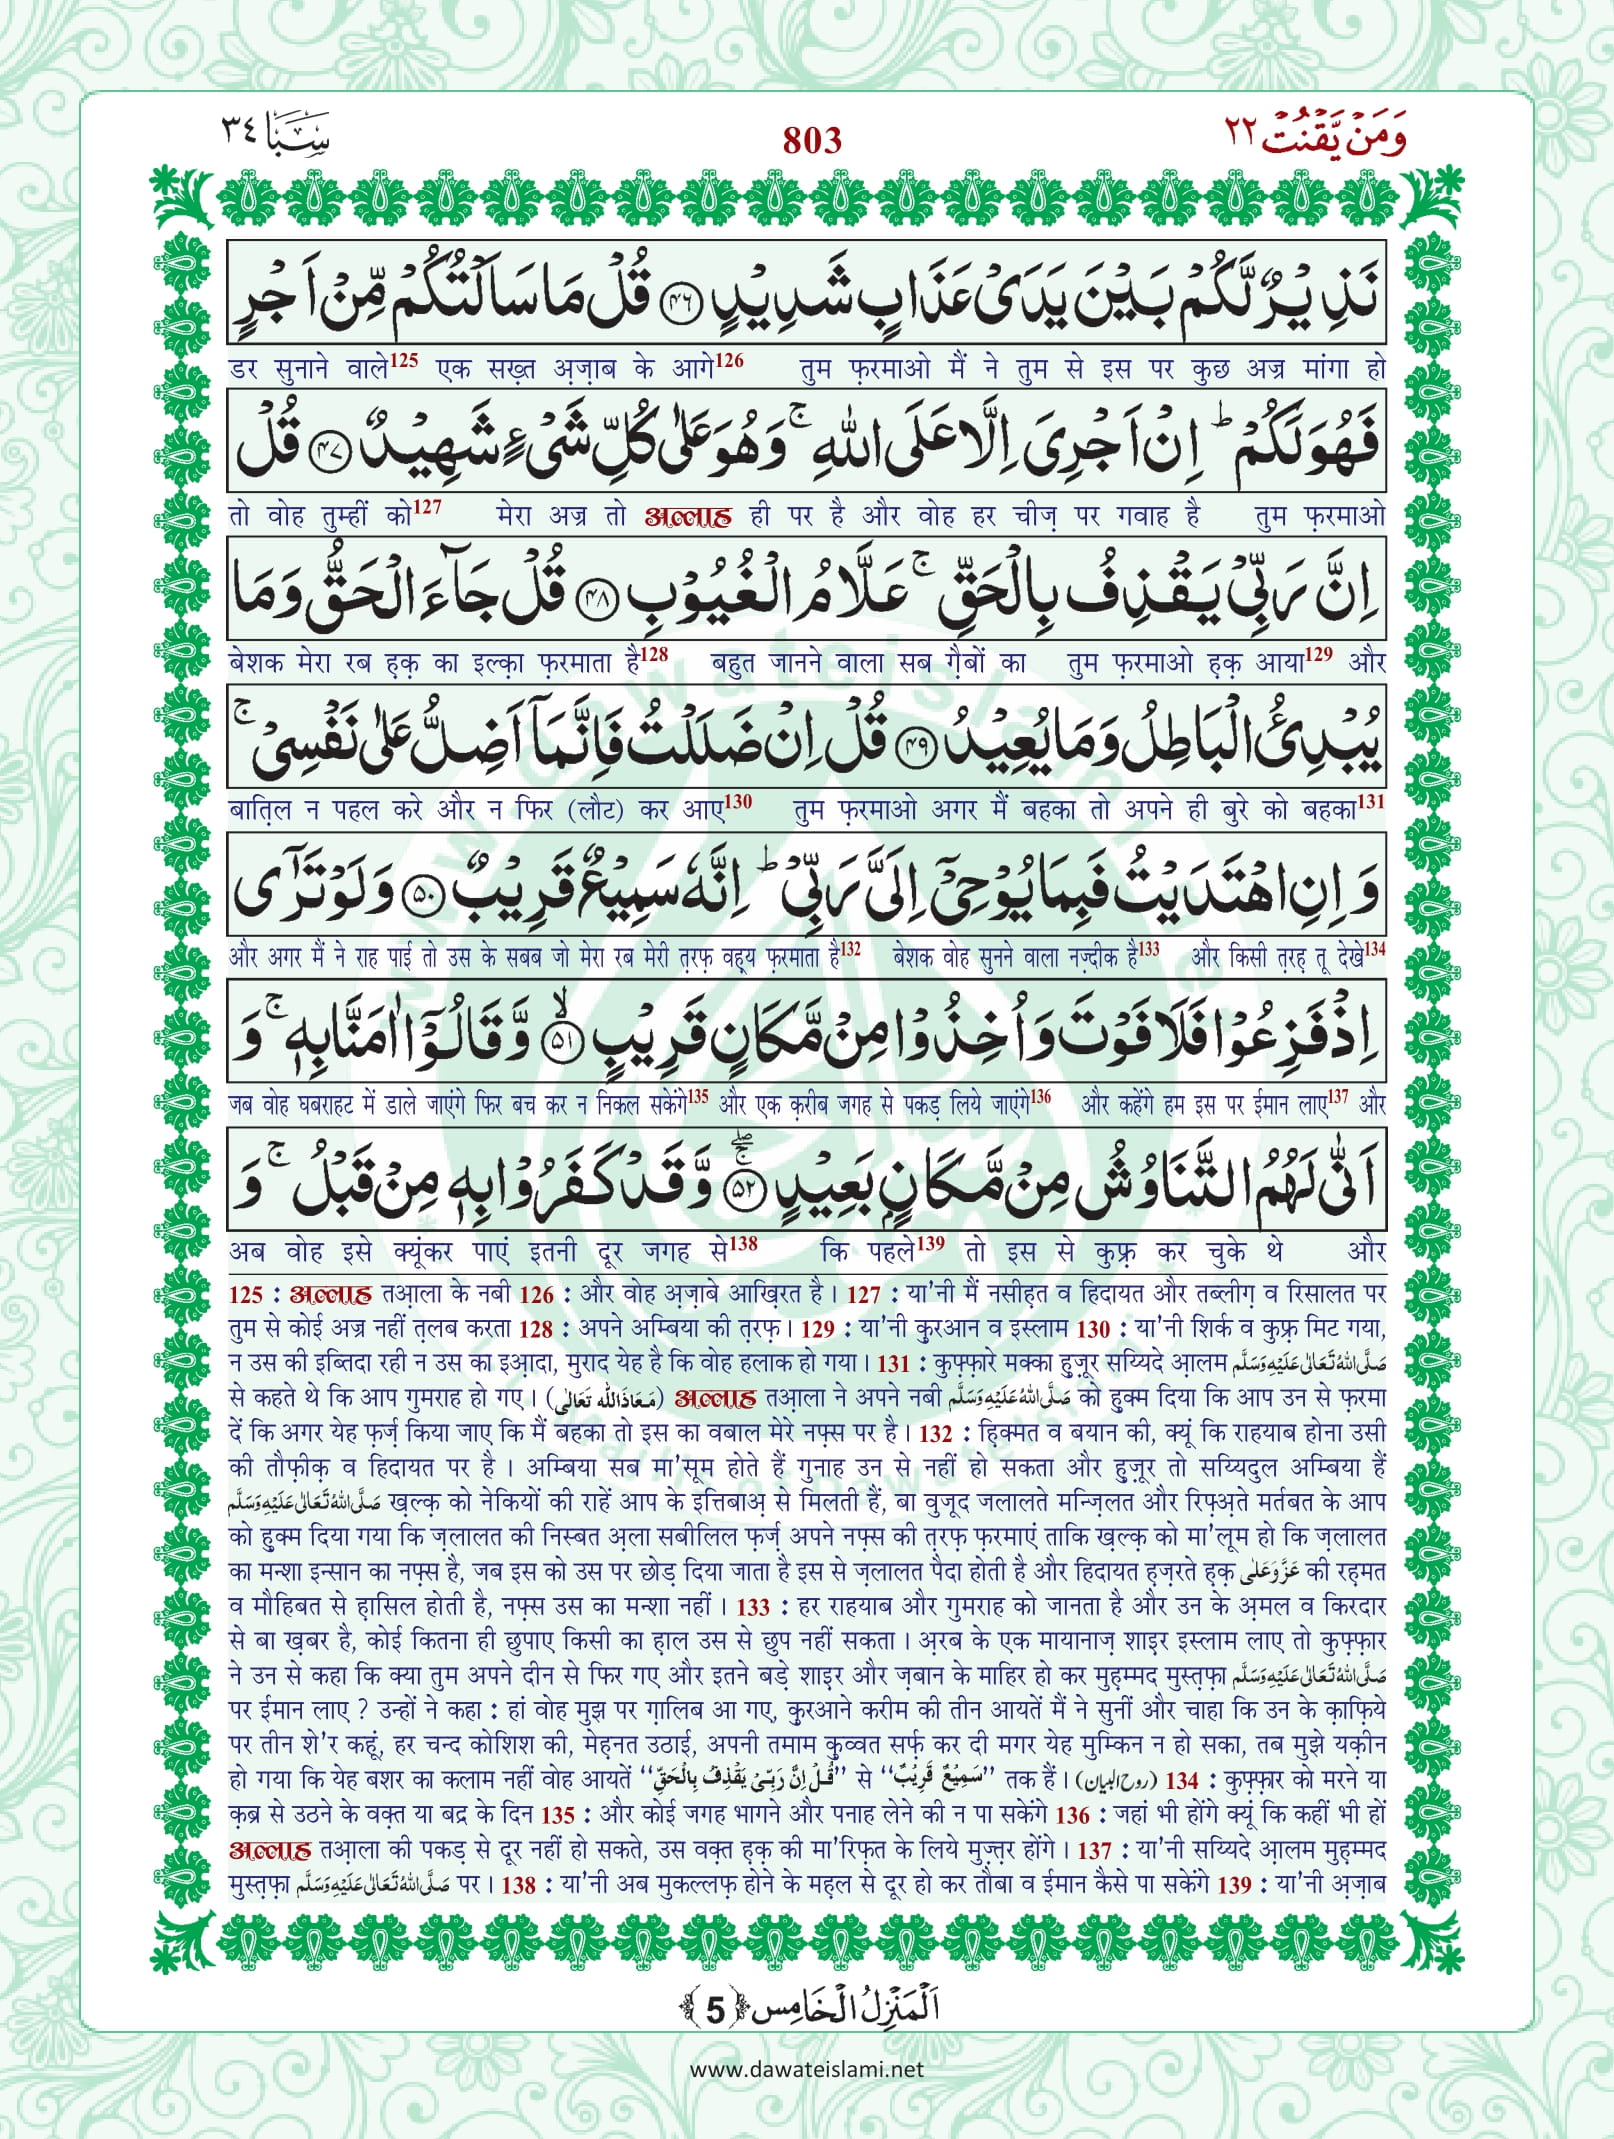 وَمَنۡ یَّقۡنُتۡ ٢٢
803
سَبَا ٣٤
نَذِیۡرٌ لَّكُمۡ بَیۡنَ یَدَیۡ عَذَابٍ شَدِیۡدٍ ﴿۴۶﴾ قُلۡ مَا سَاَلۡتُكُمۡ مِّنۡ اَجۡرٍ
डर सुनाने वाले125 एक सख़्त अ़ज़ाब के आगे126 तुम फ़रमाओ मैं ने तुम से इस पर कुछ अज्र मांगा हो
فَهُوَ لَكُمۡ ؕ اِنۡ اَجۡرِیَ اِلَّا عَلَی اللّٰهِ ۚ وَهُوَ عَلٰی كُلِّ شَیۡءٍ شَهِیۡدٌ ﴿۴۷﴾ قُلۡ
तो वोह तुम्हीं को127 मेरा अज्र तो अल्लाह ही पर है और वोह हर चीज़ पर गवाह है तुम फ़रमाओ
اِنَّ رَبِّیۡ یَقۡذِفُ بِالۡحَقِّ ۚ عَلَّامُ الۡغُیُوۡبِ ﴿۴۸﴾ قُلۡ جَآءَ الۡحَقُّ وَمَا
बेशक मेरा रब ह़क़ का इल्क़ा फ़रमाता है128 बहुत जानने वाला सब ग़ैबों का तुम फ़रमाओ ह़क़ आया129 और
یُبۡدِئُ الۡبَاطِلُ وَمَا یُعِیۡدُ ﴿۴۹﴾ قُلۡ اِنۡ ضَلَلۡتُ فَاِنَّمَاۤ اَضِلُّ عَلٰی نَفۡسِیۡ ۚ
बात़िल न पहल करे और न फिर (लौट) कर आए130 तुम फ़रमाओ अगर मैं बहका तो अपने ही बुरे को बहका131
وَ اِنِ اهۡتَدَیۡتُ فَبِمَا یُوۡحِیۡۤ اِلَیَّ رَبِّیۡ ؕ اِنَّهٗ سَمِیۡعٌ قَرِیۡبٌ ﴿۵۰﴾ وَلَوۡ تَرٰۤی
और अगर मैं ने राह पाई तो उस के सबब जो मेरा रब मेरी त़रफ़ वह़्य फ़रमाता है132 बेशक वोह सुनने वाला नज़्दीक है133 और किसी त़रह़ तू देखे134
اِذۡ فَزِعُوۡا فَلَا فَوۡتَ وَ اُخِذُوۡا مِنۡ مَّكَانٍ قَرِیۡبٍ ﴿ۙ۵۱﴾ وَّ قَالُوۡۤا اٰمَنَّا بِهٖ ۚ وَ
जब वोह घबराहट में डाले जाएंगे फिर बच कर न निकल सकेंगे135 और एक क़रीब जगह से पकड़ लिये जाएंगे136 और कहेंगे हम इस पर ईमान लाए137 और
اَنّٰی لَهُمُ التَّنَاوُشُ مِنۡ مَّكَانٍۭ بَعِیۡدٍ ﴿ۚۖ۵۲﴾ وَّ قَدۡ كَفَرُوۡا بِهٖ مِنۡ قَبۡلُ ۚ وَ
अब वोह इसे क्यूंकर पाएं इतनी दूर जगह से138 कि पहले139 तो इस से कुफ़्र कर चुके थे और
125 : अल्लाह तआ़ला के नबी 126 : और वोह अ़ज़ाबे आख़िरत है। 127 : या'नी मैं नसीह़त व हिदायत और तब्लीग़ व रिसालत पर
तुम से कोई अज्र नहीं त़लब करता 128 : अपने अम्बिया की त़रफ़। 129 : या'नी क़ुरआन व इस्लाम 130 : या'नी शिर्क व कुफ़्र मिट गया,
न उस की इब्तिदा रही न उस का इआ़दा, मुराद येह है कि वोह हलाक हो गया। 131 : कुफ़्फ़ारे मक्का हु़ज़ूर सय्यिदे आ़लम صَلَّی اللهُ تَعَالٰی عَلَیْهِ وَسَلَّم
से कहते थे कि आप गुमराह हो गए। (مَعَاذَاللّٰه تَعَالٰی) अल्लाह तआ़ला ने अपने नबी صَلَّی اللهُ عَلَیْهِ وَسَلَّم को हु़क्म दिया कि आप उन से फ़रमा
दें कि अगर येह फ़र्ज़ किया जाए कि मैं बहका तो इस का वबाल मेरे नफ़्स पर है। 132 : हि़क्मत व बयान की, क्यूं कि राहयाब होना उसी
की तौफ़ीक़ व हिदायत पर है। अम्बिया सब मा'सूम होते हैं गुनाह उन से नहीं हो सकता और हु़ज़ूर तो सय्यिदुल अम्बिया हैं
صَلَّی اللهُ تَعَالٰی عَلَیْهِ وَسَلَّم ख़ल्क़ को नेकियों की राहें आप के इत्तिबाअ़ से मिलती हैं, बा वुजूद जलालते मन्ज़िलत और रिफ़्अ़ते मर्तबत के आप
को हु़क्म दिया गया कि ज़लालत की निस्बत अ़ला सबीलिल फ़र्ज़ अपने नफ़्स की त़रफ़ फ़रमाएं ताकि ख़ल्क़ को मा'लूम हो कि ज़लालत
का मन्शा इन्सान का नफ़्स है, जब इस को उस पर छोड़ दिया जाता है इस से ज़लालत पैदा होती है और हिदायत ह़ज़रते ह़क़ عَزَّوَعَلٰی की रह़मत
व मौहिबत से ह़ासिल होती है, नफ़्स उस का मन्शा नहीं। 133 : हर राहयाब और गुमराह को जानता है और उन के अ़मल व किरदार
से बा ख़बर है, कोई कितना ही छुपाए किसी का ह़ाल उस से छुप नहीं सकता। अ़रब के एक मायानाज़ शाइ़र इस्लाम लाए तो कुफ़्फ़ार
ने उन से कहा कि क्या तुम अपने दीन से फिर गए और इतने बड़े शाइ़र और ज़बान के माहिर हो कर मुह़म्मद मुस्त़फ़ा صَلَّی اللهُ تَعَالٰی عَلَیْهِ وَسَلَّم
पर ईमान लाए ? उन्हों ने कहा : हां वोह मुझ पर ग़ालिब आ गए, क़ुरआने करीम की तीन आयतें मैं ने सुनीं और चाहा कि उन के क़ाफ़िये
पर तीन शे'र कहूं, हर चन्द कोशिश की, मेह़नत उठाई, अपनी तमाम क़ुव्वत सर्फ़ कर दी मगर येह मुम्किन न हो सका, तब मुझे यक़ीन
हो गया कि येह बशर का कलाम नहीं वोह आयतें “قُلْ اِنَّ رَبِّیْ یَقْذِفُ بِالْحَقِّ” से “سَمِیْعٌ قَرِیْبٌ” तक हैं। (روح البیان) 134 : कुफ़्फ़ार को मरने या
क़ब्र से उठने के वक़्त या बद्र के दिन 135 : और कोई जगह भागने और पनाह लेने की न पा सकेंगे 136 : जहां भी होंगे क्यूं कि कहीं भी हों
अल्लाह तआ़ला की पकड़ से दूर नहीं हो सकते, उस वक़्त ह़क़ की मा'रिफ़त के लिये मुज़्त़र होंगे। 137 : या'नी सय्यिदे आ़लम मुह़म्मद
मुस्त़फ़ा صَلَّی اللهُ تَعَالٰی عَلَیْهِ وَسَلَّم पर। 138 : या'नी अब मुकल्लफ़ होने के मह़ल से दूर हो कर तौबा व ईमान कैसे पा सकेंगे 139 : या'नी अ़ज़ाब
اَلۡمَنۡزِلُ الۡخَامِس ﴿5﴾
www.dawateislami.net